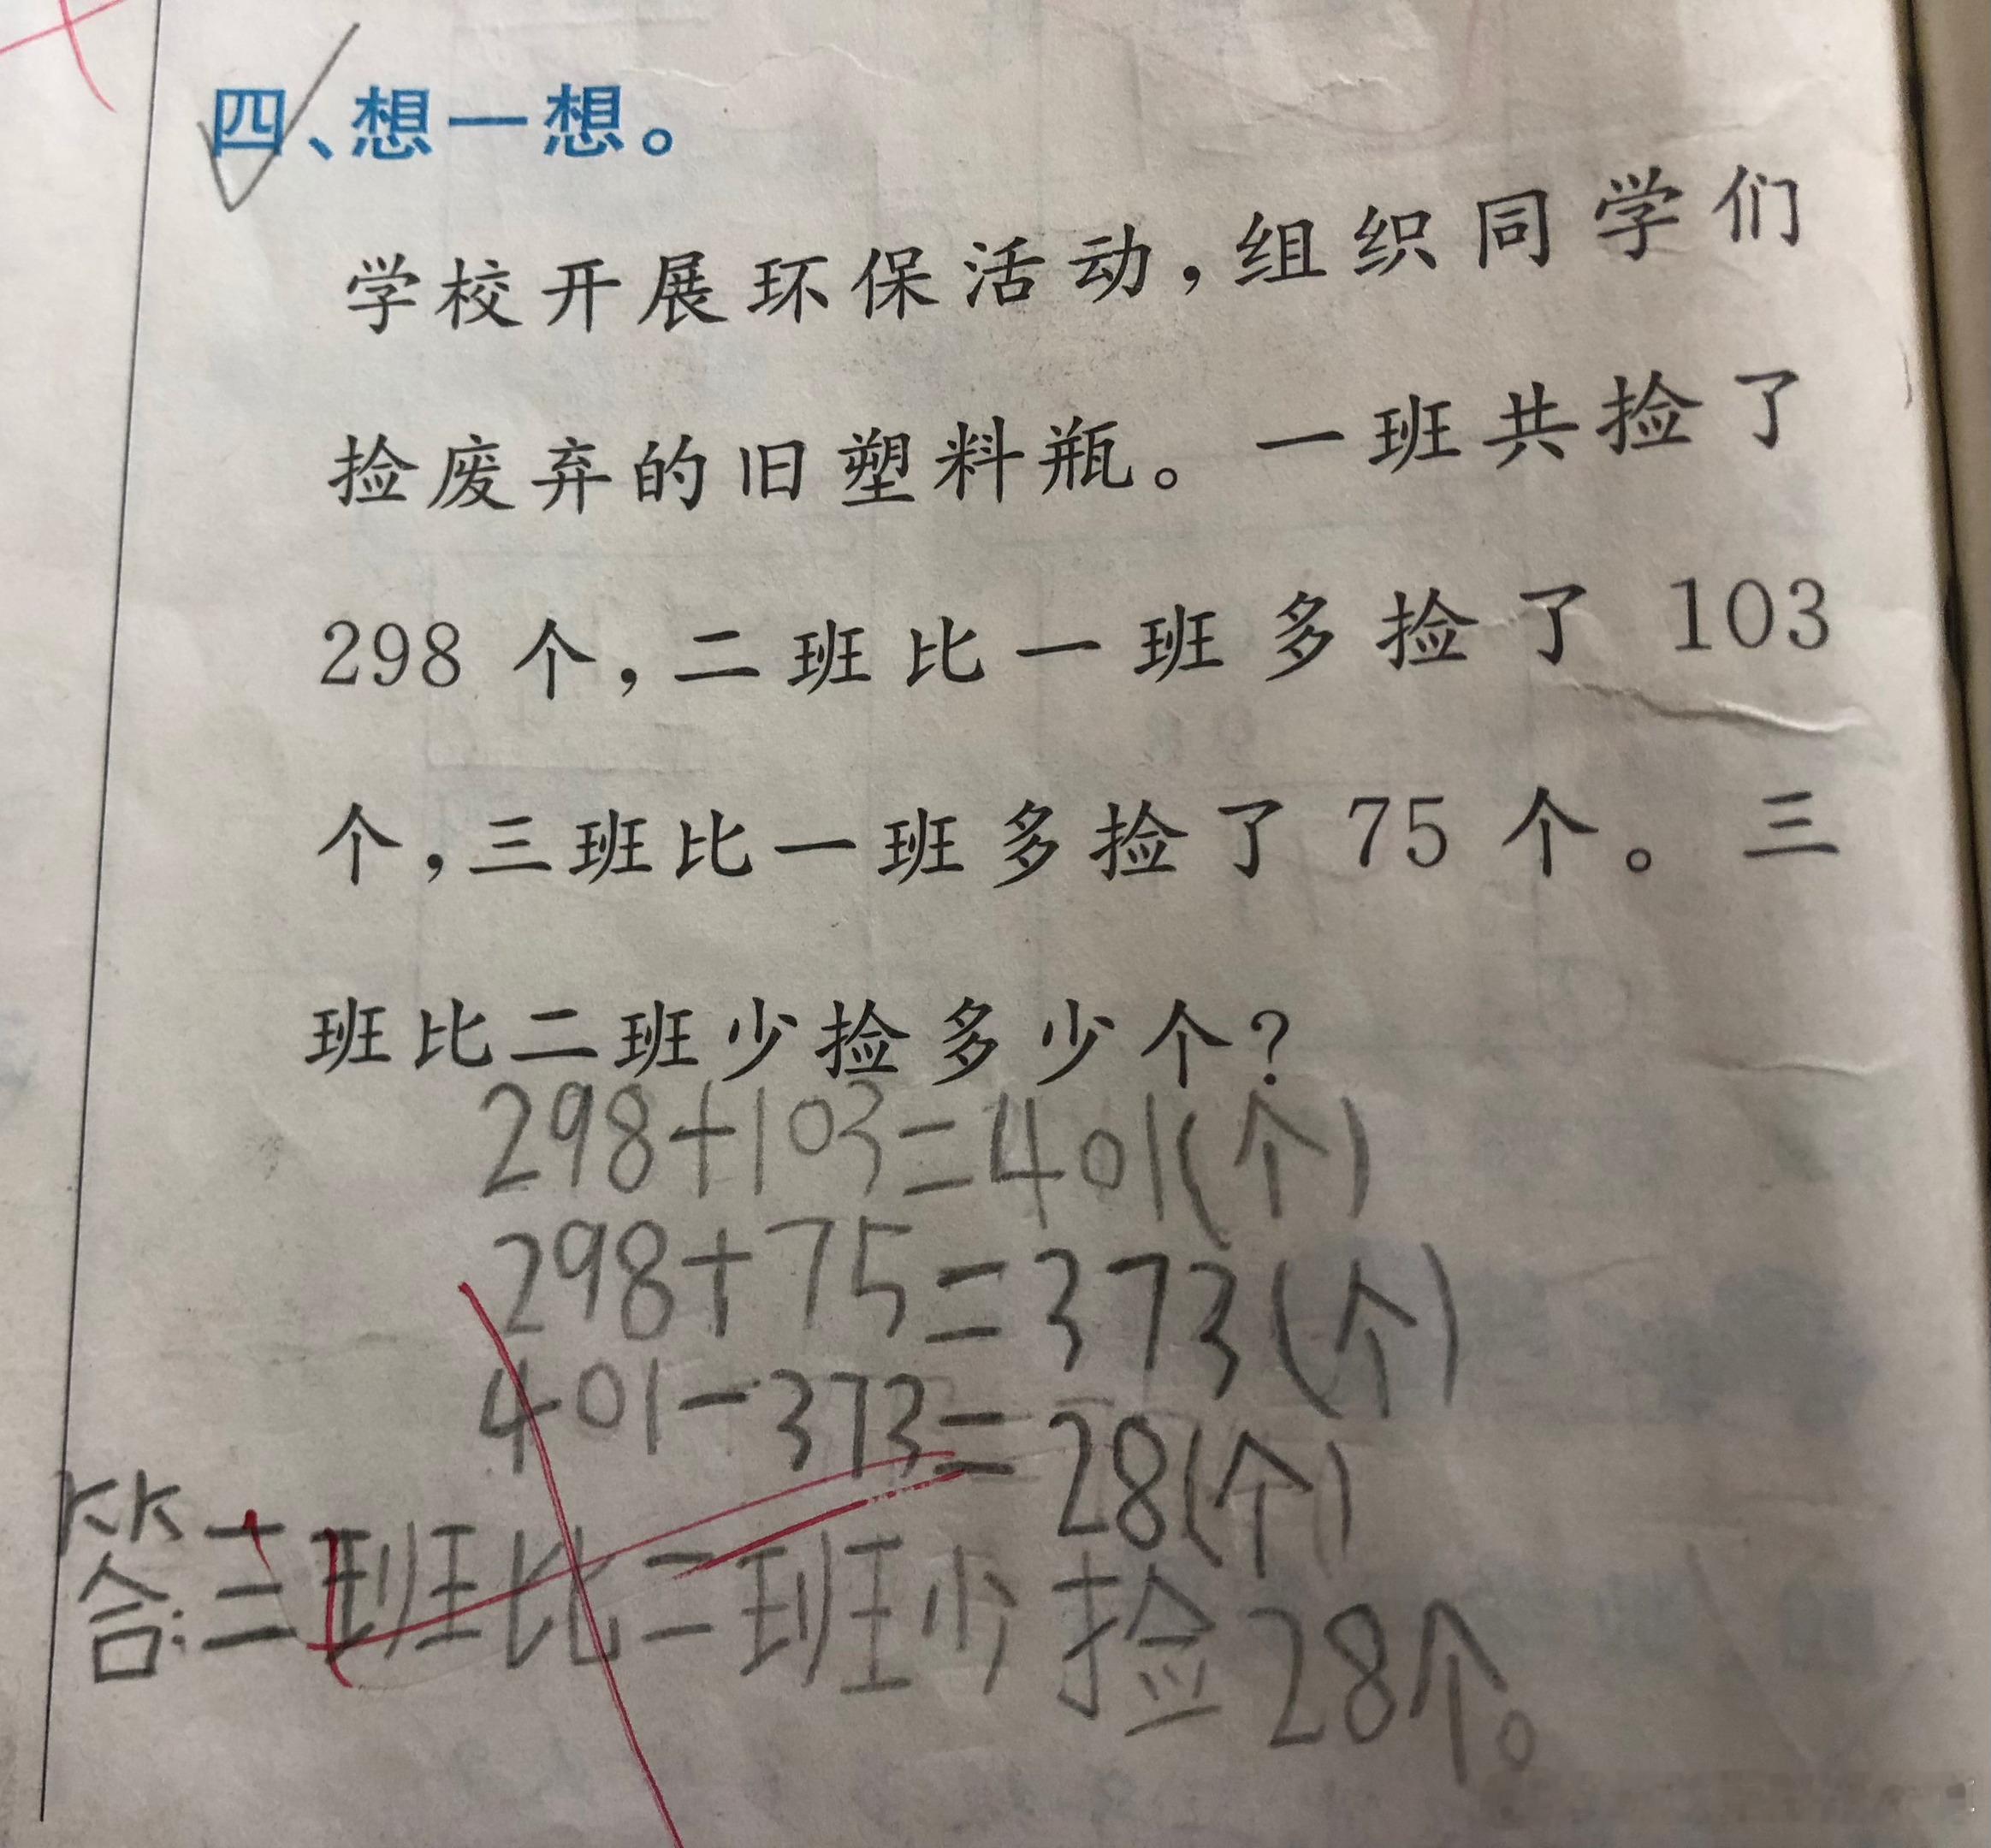 四、想一想。
学校开展环保活动,组织同学们
捡废弃的旧塑料瓶。一班共捡了
298 个,二班比一班多捡了 103
个,三班比一班多捡了 75 个。三
班比二班少捡多少个?
298+103=401(个)
298+75=373(个)
401-373=28(个)
答:三班比二班少捡28个。